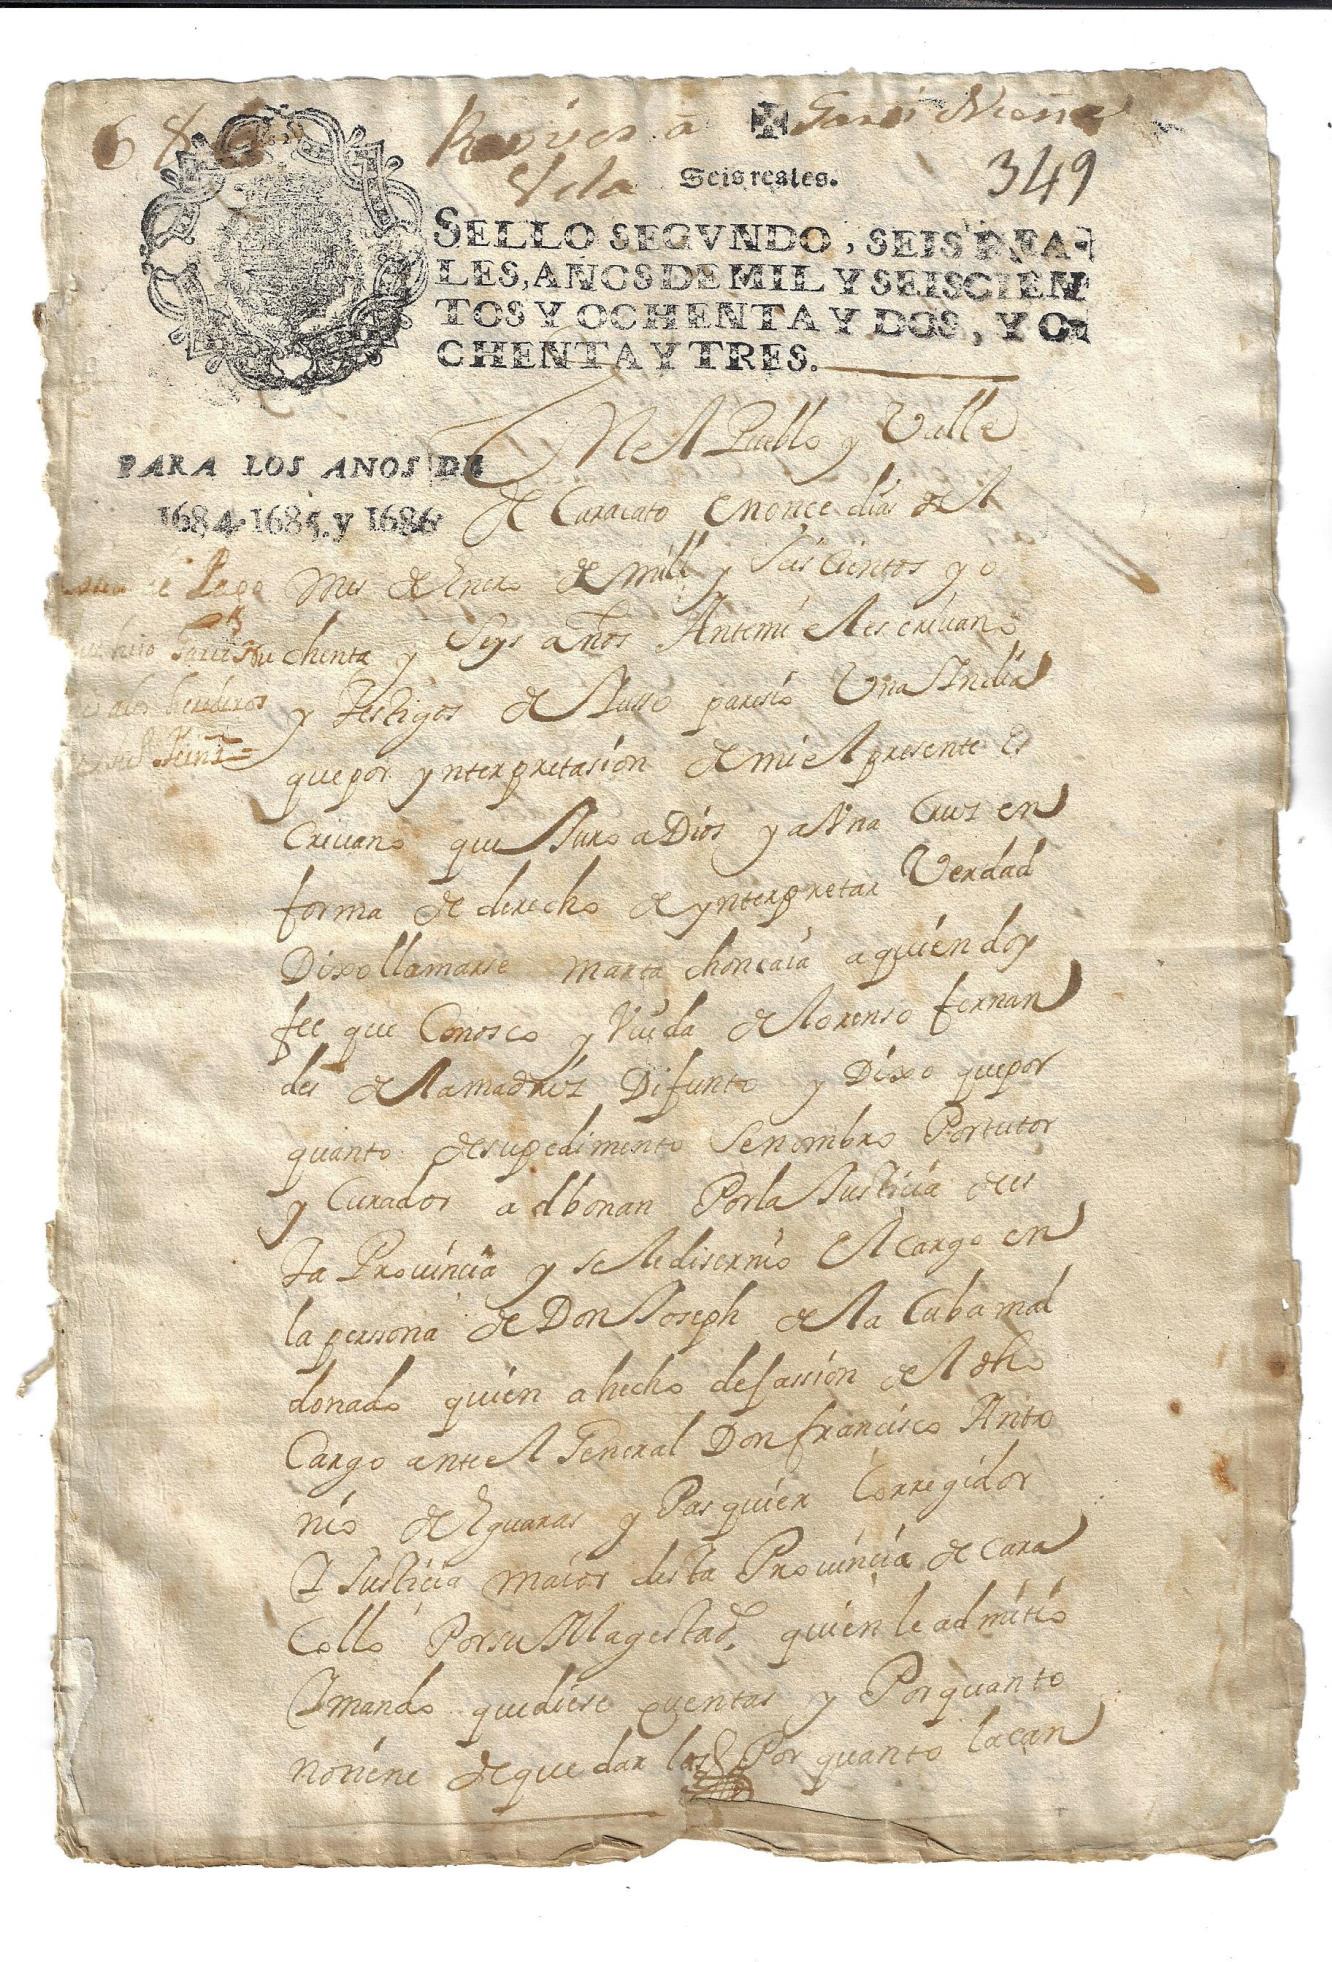 68
349
Seis reales.
SELLO SEGVNDO, SEIS REA-
LES, AÑOS DE MIL Y SEISCIEN
TOS Y OCHENTA Y DOS, Y O-
CHENTA Y TRES.
PARA LOS AÑOS DE
1684. 1685. y 1686
En el Pueblo y Valle
de Caracato en once dias del
Mes de Enero de mill y Seiscientos y o
chenta y Seys años Antemi el escrivano
y testigos de Yusso paresio Una Yndia
que por ynterpretasion de mi el presente es
crivano que Juro a Dios y a Una Cruz en
forma de derecho de ynterpretar Verdad
Dixo llamarse Maria choncaia a quien doy
fee que Conosco y Viuda de Lorenso fernan
des de la madriz Difunto y Dixo que por
quanto de su pedimento se nombro Por tutor
y Curador ad bonan Por la Justicia des
ta Provincia y se le disernio el cargo en
la persona de Don Joseph de la Cuba mal
donado quien a hecho desassion del dho
Cargo ante el General Don francisco Anto
nio de Eguaras y Pasquier Corregidor
y Justicia maior desta Provincia de Cara
collo Por su Magestad, quien le admitio
y mando que diese quentas y Por quanto
no tiene de que dar las Por quanto la can